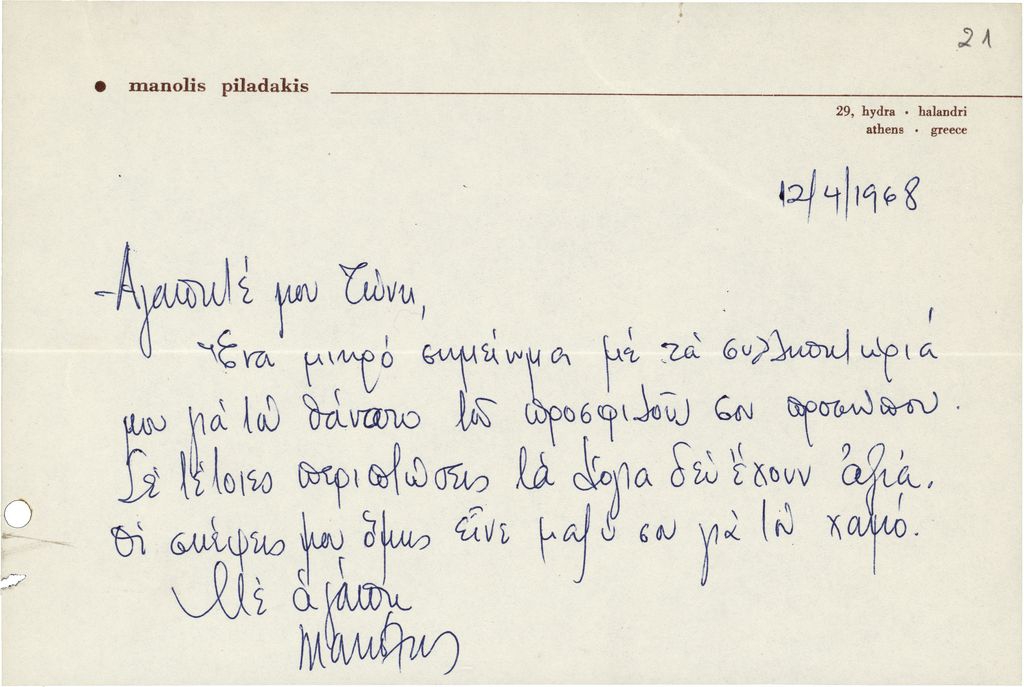 21
● manolis piladakis
29, hydra · halandri
athens · greece
12/4/1968
Ἀγαπητέ μου Τώνη,
Ἕνα μικρό σημείωμα μέ τά συλληπητήριά
μου γιά τόν θάνατο τοῦ προσφιλοῦς σου προσώπου.
Σέ τέτοιες περιπτώσεις τά λόγια δέν ἔχουν ἀξία.
Οἱ σκέψεις μου ὅμως εἶνε μαζύ σου γιά τόν χαμό.
Μέ ἀγάπη
Μανώλης